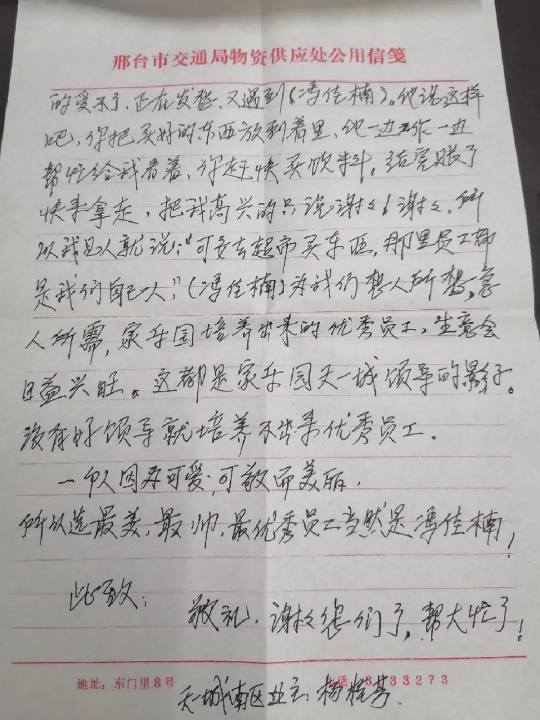 邢台市交通局物资供应处公用信笺
的受不了,正在发愁,又遇到(冯佳楠)。他说这样
吧,你把买好的东西放到着里,他一边工作一边
帮忙给我看着,你赶快买饮料,结完账了
快来拿走,把我高兴的只说谢谢!谢谢,所
以我见人就说:"可要去超市买东西,那里员工都
是我们自己人,"(冯佳楠)为我们想人所想,急
人所需,家乐园培养出来的优秀员工,生意会
日益兴旺。这都是家乐园天一城领导的影子。
没有好领导就培养不出来优秀员工。
一个人因为可爱,可敬而美丽.
所以选最美,最帅,最优秀员工当然是冯佳楠!
此致:
敬礼,谢谢您们了,帮大忙了!
地址:东门里8号 电话 33273
天一城南区业主:杨桂芳.